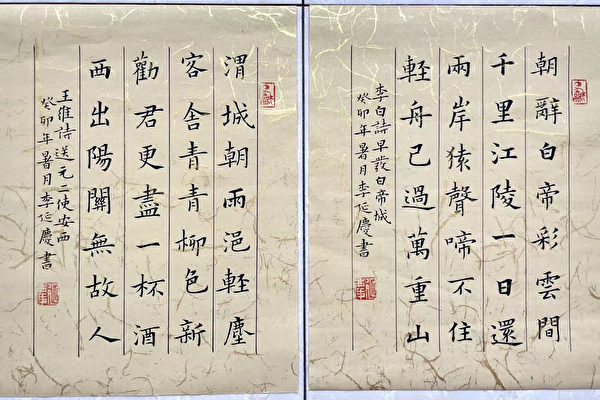 朝辭白帝彩雲間
千里江陵一日還
兩岸猿聲啼不住
輕舟已過萬重山
李白詩早發白帝城
癸卯年暑月李延慶書
渭城朝雨浥輕塵
客舍青青柳色新
勸君更盡一杯酒
西出陽關無故人
王維詩送元二使安西
癸卯年暑月李延慶書